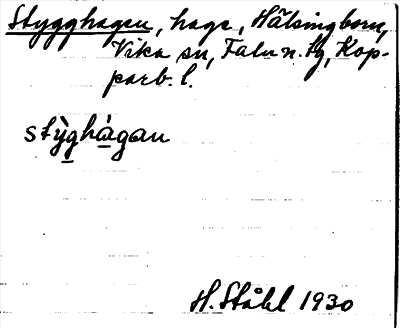 Stygghagen, hage, Hälsingborn,
Vika sn, Falu n. tg, Kop-
parb. l.
stỳghágan
H. Ståhl 1930